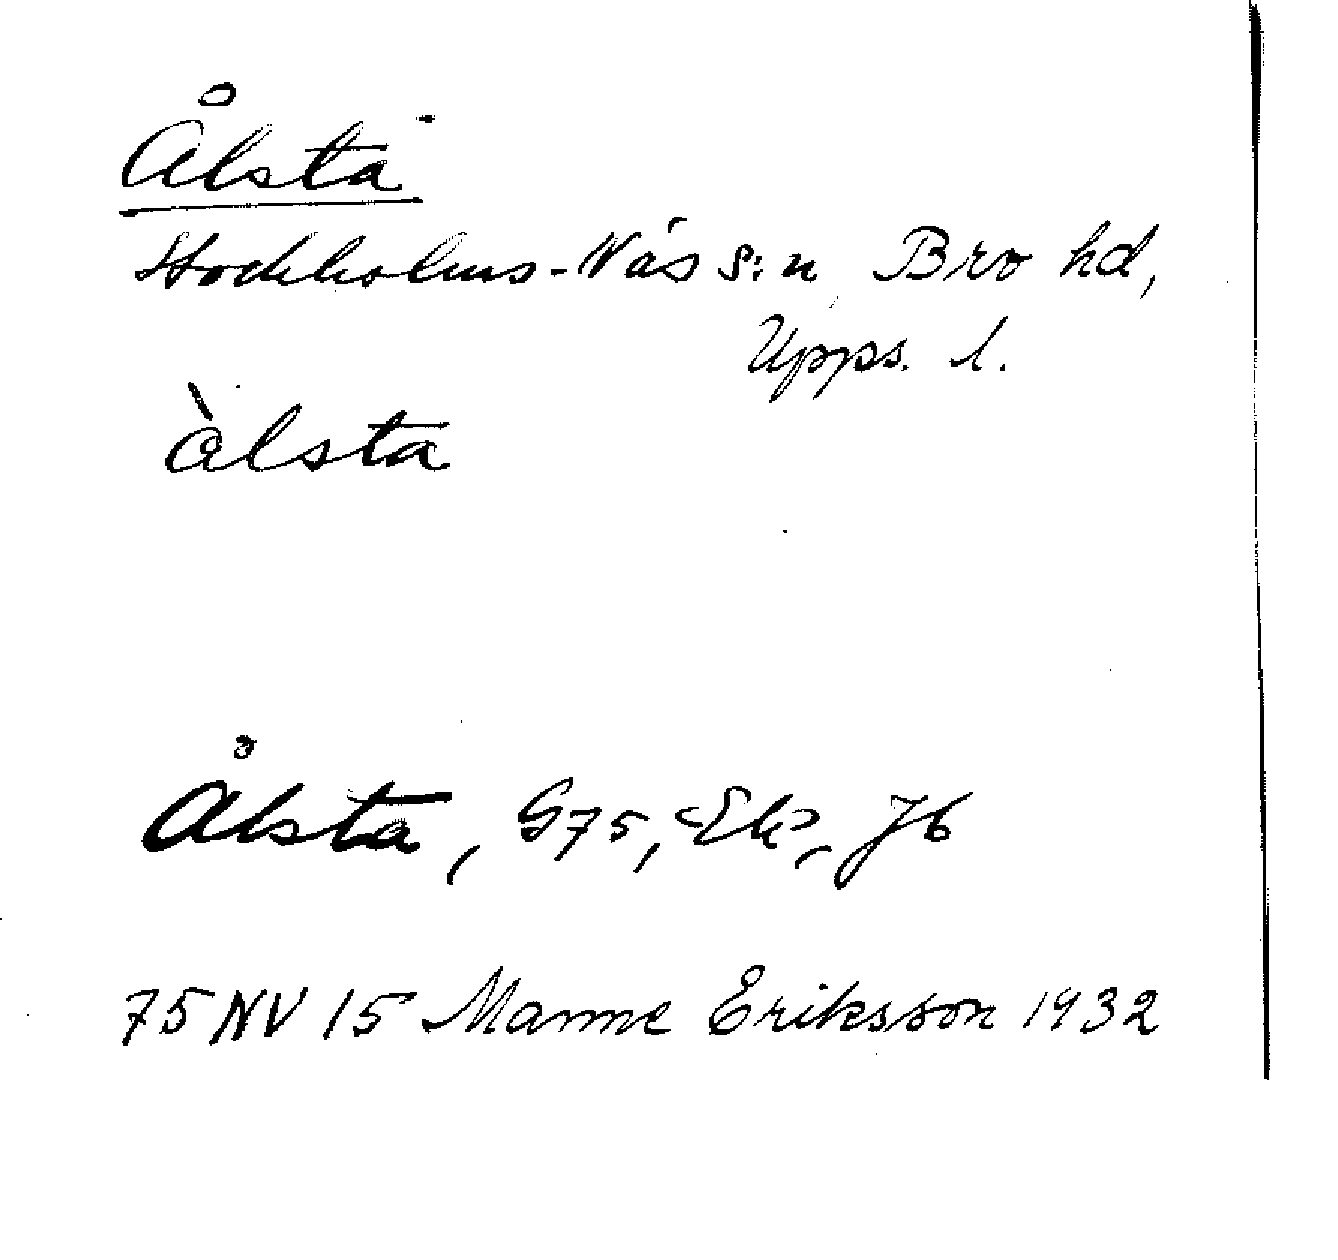 Ålsta
Stockholms-Näs s:n Bro hd,
Upps. l.
àlsta
Ålsta, G75, Ek, Jb
75 NV 15 Manne Eriksson 1932